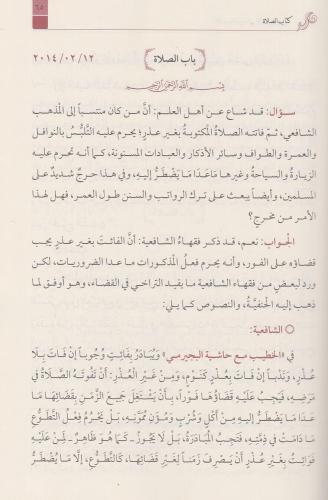 كتاب الصلاة
٦٥
باب الصلاة
٢٠١٤/٠٢/١٢
بسم الله الرحمن الرحيم
سؤال: قد شاع عن أهل العلم: أنَّ من كان منتسباً إلى المذهب
الشافعي، ثمَّ فاتته الصلاةُ المكتوبةُ بغير عذرٍ؛ يحرم عليه التَّلبُّس بالنوافل
والعمرة والطواف وسائر الأذكار والعبادات المسنونة، كما أنه تحرم عليه
الزيارةُ والسياحةُ وغيرها مَاعَدَا مَا يَضْطَرُّ إِلَيهِ، وفي هذا حرجٌ شديدٌ على
المسلمين، وأيضاً يبعث على ترك الرواتب والسنن طول العمر، فهل لهذا
الأمر من مخرجٍ؟
الجواب: نعم، قد ذكر فقهاءُ الشافعية: أنَّ الفائتَ بغير عذرٍ يجب
قضاؤه على الفور، وأنه يحرم فعلُ المذكورات ما عدا الضروريات، لكن ورد
لبعضٍ من فقهاء الشافعية ما يفيد التراخي في القضاء، وهو أوفق لما
ذهب إليه الحنفيَّة، والنصوص كما يلي:
الشافعية:
في «الخطيب مع حاشية البجيرمي» وَيُبَادَرُ بِفَائِتٍ وُجُوباً إنْ فَاتَ بِلَا
عُذْرٍ، وَنَدْباً إنْ فَاتَ بِعُذْرٍ كَنَوْمٍ، وَمِنْ غَيْرِ الْعُذْرِ: أَنْ تَفُوتَهُ الصَّلَاةُ فِي
مَرَضِهِ، فَيَجِبُ عَلَيْهِ قَضَاؤُهَا فَوْراً، بِأَنْ يَشْتَغِلَ جَمِيعَ الزَّمَنِ بِقَضَائِهَا مَا
عَدَا مَا يَضْطَرُّ إلَيْهِ مِنْ أَكْلٍ وَشُرْبٍ وَمُؤَنِ مُمَوَّنِهِ، بَلْ يَحْرُمُ فِعْلُ التَّطَوُّعِ
مَا دَامَتْ فِي ذِمَّتِهِ، فَتَجِبُ الْمُبَادَرَةُ، بَلْ لَا يَجُوزُ ـ كَمَا هُوَ ظَاهِرٌ ـ لِمَنْ عَلَيْهِ
فَوَائِتُ بِغَيْرِ عُذْرٍ أَنْ يَصْرِفَ زَمَناً لِغَيْرِ قَضَائِهَا، كَالتَّطَوُّعِ، إلَّا مَا يُضْطَرُّ